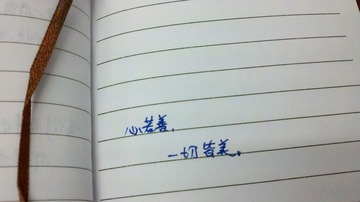 心若善,
一切皆美。